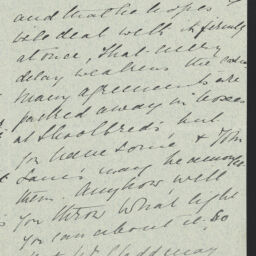 and that he hopes
deal with it firmly
at once, that every
delay weakens the
many agreements are
packed away in boxes
at Shoolbred's but
you have some & Tom
Lane's may be among
them. Anyhow, will
you throw what light
you can about it. So